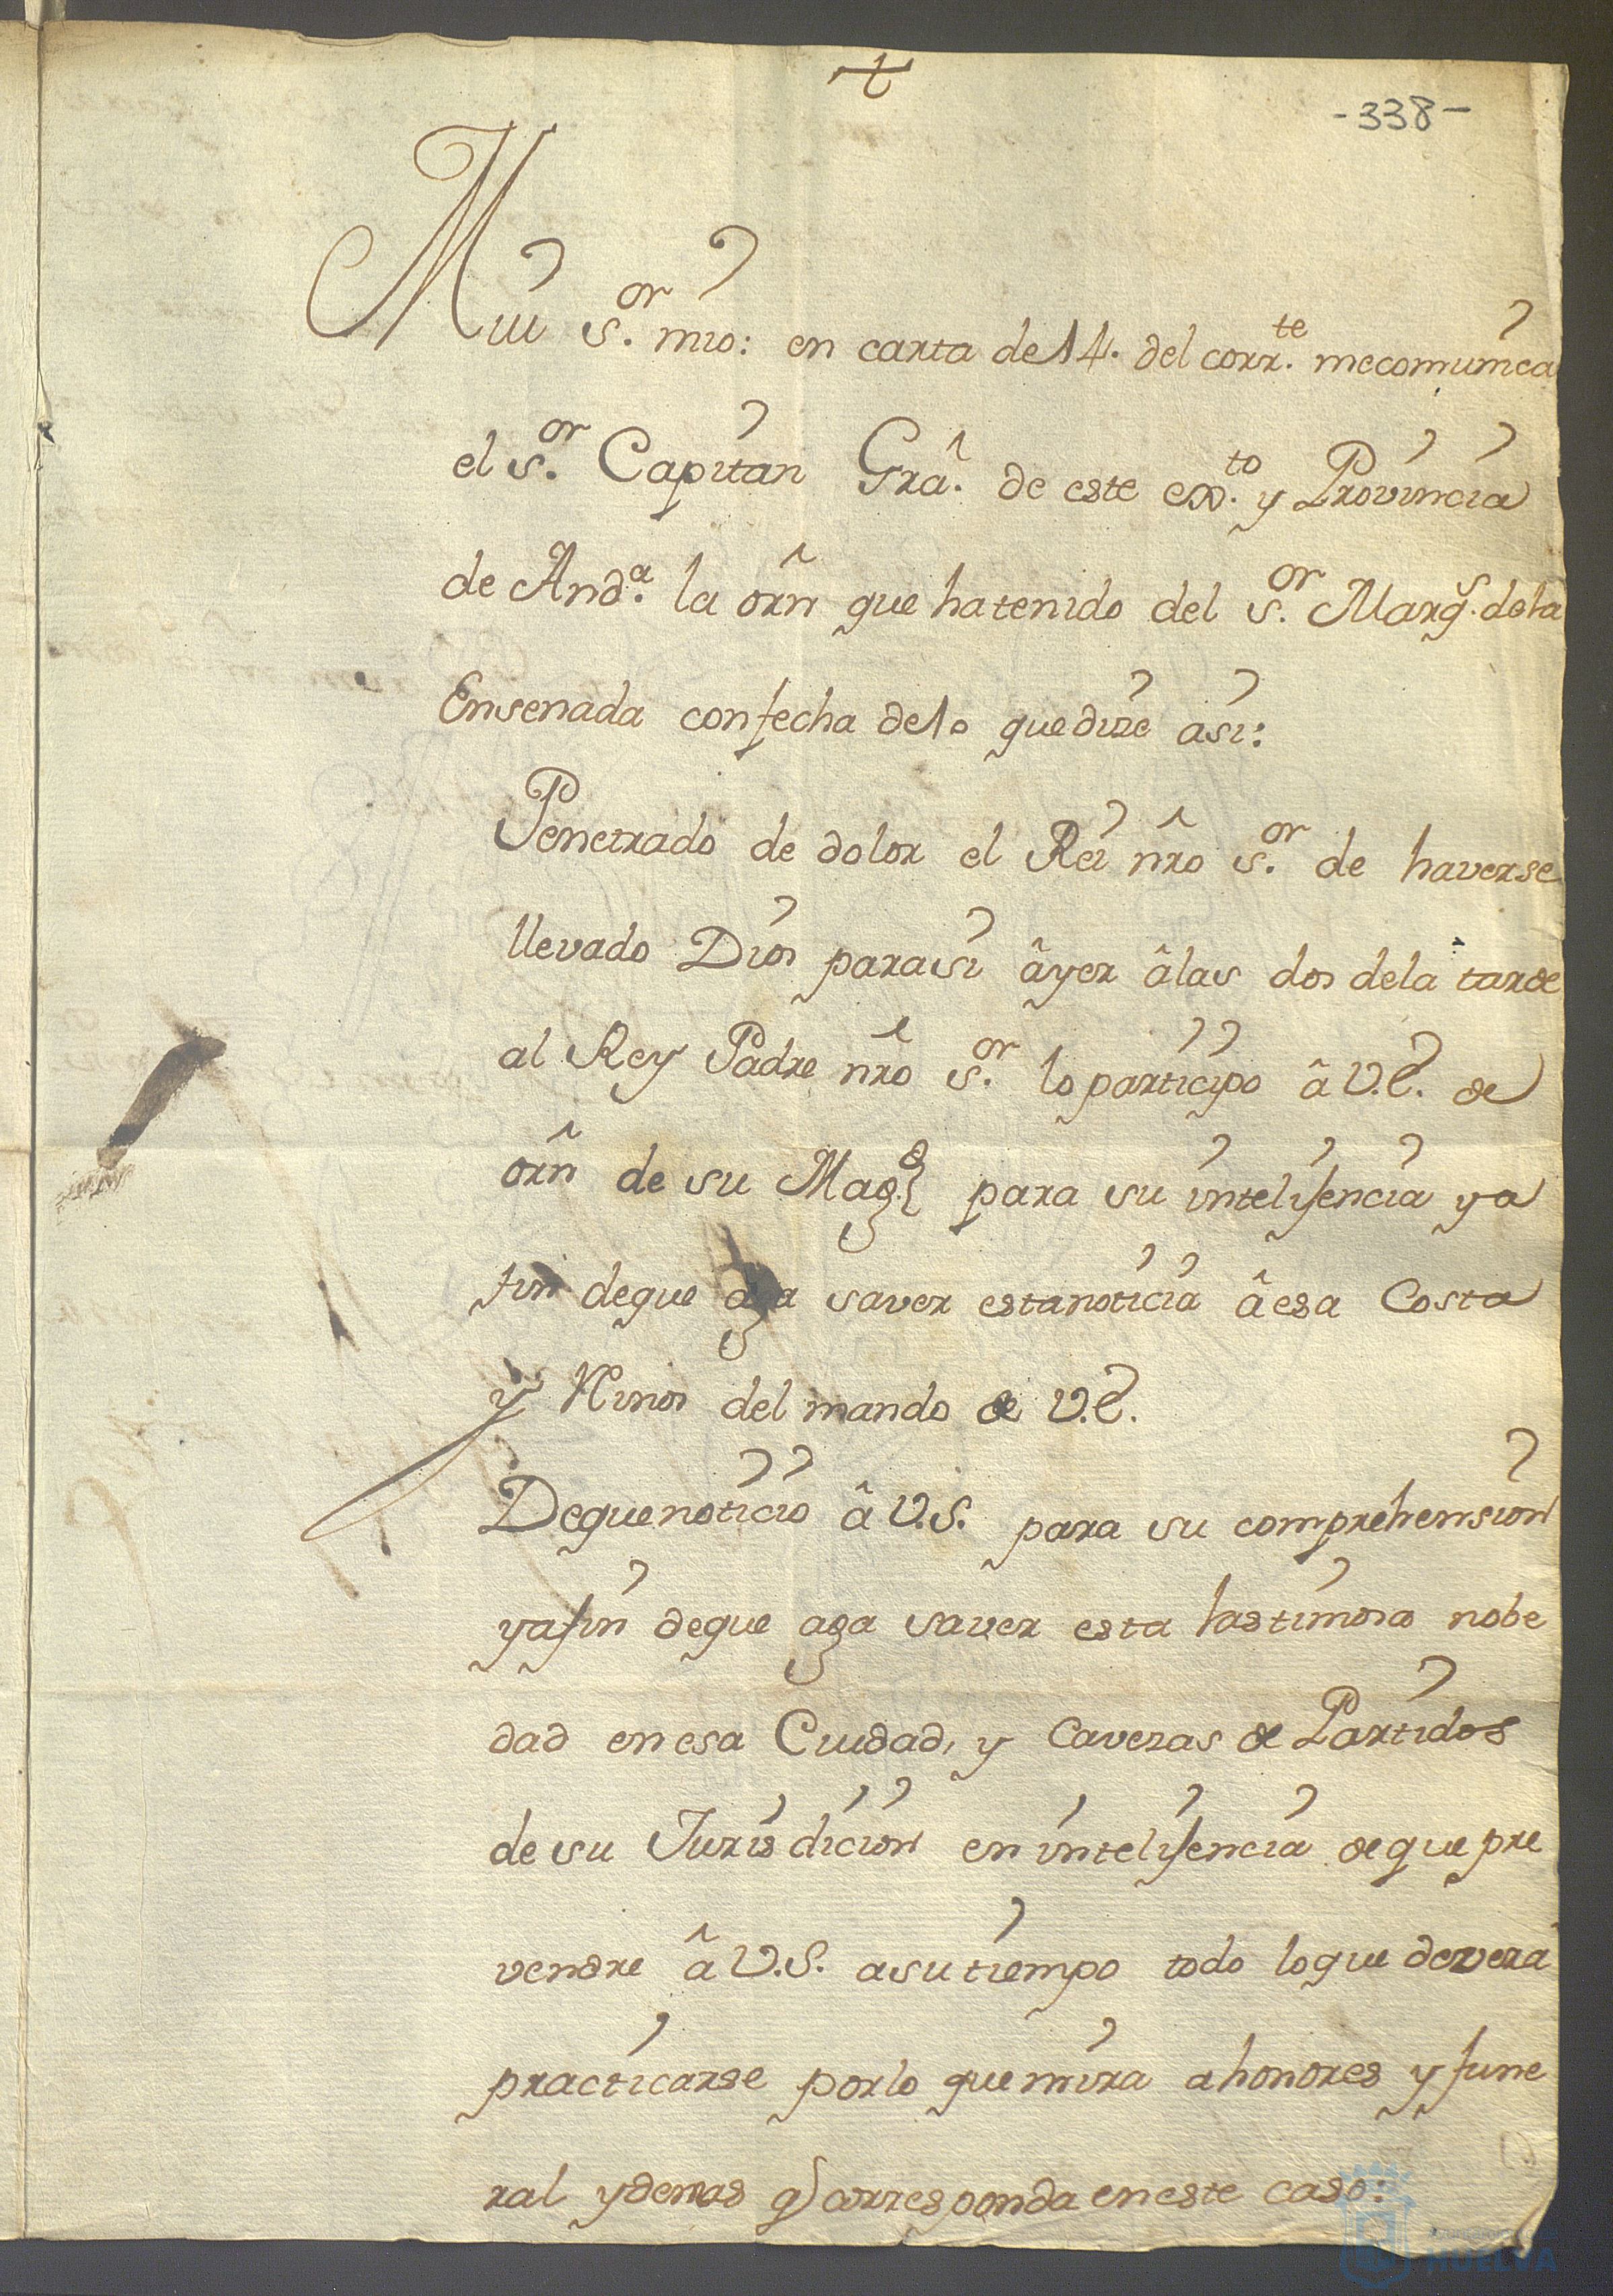 -338-
Mui s.or mio: en carta de 14. del corr.te me comunica
el s.or Capitan Grâ. de este exto. y Provincia
de Andª. la orñ que ha tenido del s.or Marqs. de la
Ensenada con fecha de 10 que dize asi:
Penetrado de dolor el Rei nr̃o s.or de haverse
llevado Dios para si âyer âlas dos dela tarde
al Rey Padre nr̃o s.or lo participo â V.E. de
orñ de su Magd. para su intelijencia y a
fin de que aga saver esta noticia â esa Costa
y del mando de V.E.
De que noticio â V.S. para su comprehension
y a fin de que aga saver esta lastimosa nobe
dad en esa Ciudad, y Cavezas de Partidos
de su Jurisdicion en intelijencia de que pre
vendre â V.S. a su tiempo todo lo que devera
practicarse por lo que mira a honores y fune
ral y demas q corresponda en este caso:
HUELVA